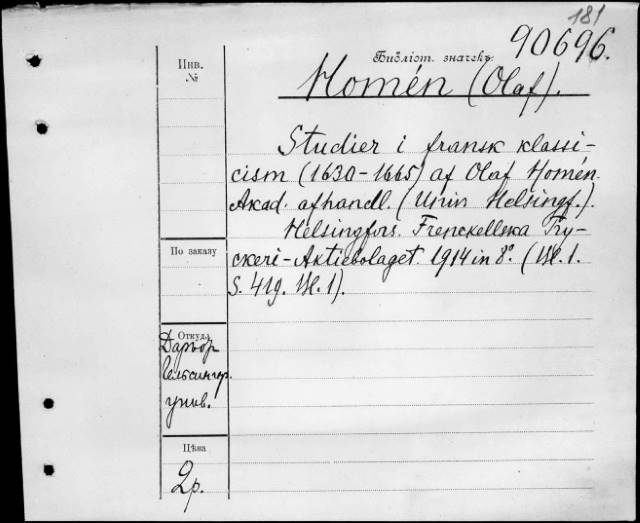 181
90696.
Инв.
№
Библіот. значекъ:
Homén (Olaf).
Studier i fransk klassi-
cism (1630-1665) af Olaf Homén.
Akad. afhandl. (Univ. Helsingf.).
Helsingfors. Frenckellska Try-
ckeri-Aktiebolaget. 1914 in 8°. (Bl. 1.
S. 419. Bl. 1).
По заказу
Откуд.
Гельсингф.
унив.
Цѣна
2р.